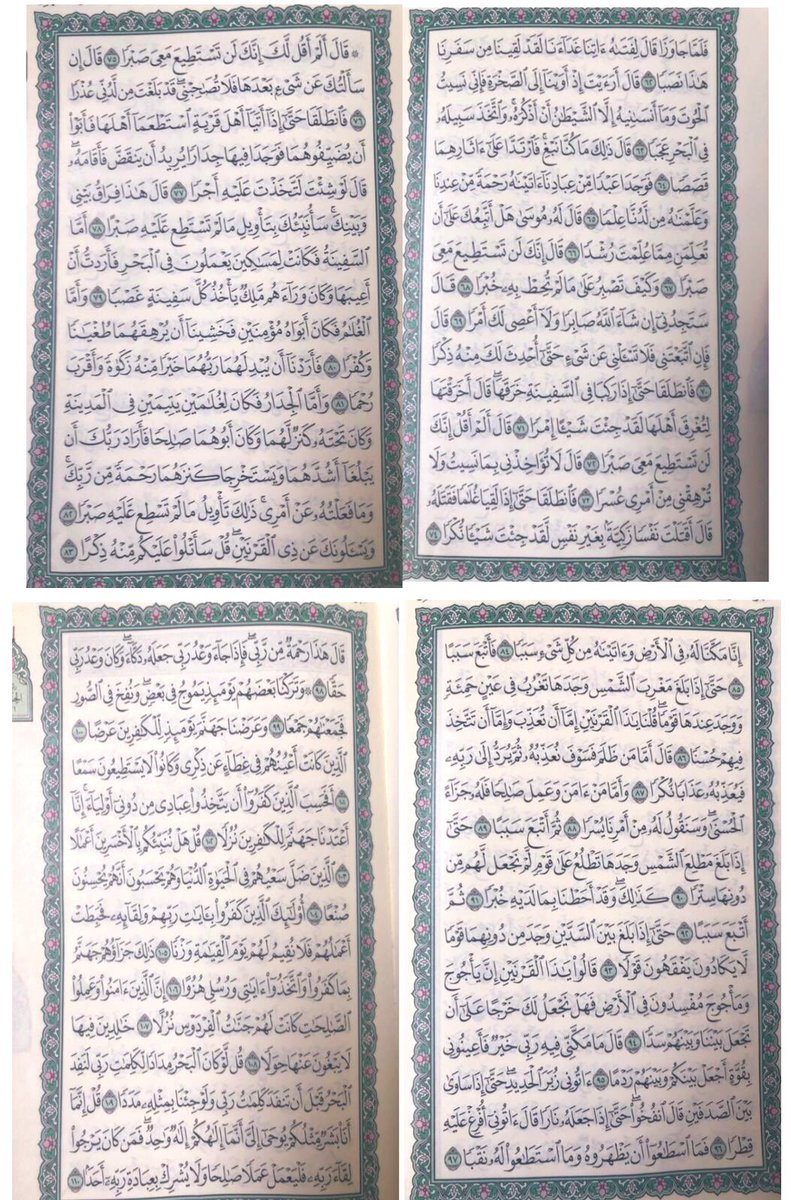 فَلَمَّا جَاوَزَا قَالَ لِفَتَىٰهُ ءَاتِنَا غَدَآءَنَا لَقَدْ لَقِينَا مِن سَفَرِنَا
هَٰذَا نَصَبًا ٦٢ قَالَ أَرَءَيْتَ إِذْ أَوَيْنَآ إِلَى ٱلصَّخْرَةِ فَإِنِّي نَسِيتُ
ٱلْحُوتَ وَمَآ أَنسَىٰنِيهُ إِلَّا ٱلشَّيْطَٰنُ أَنْ أَذْكُرَهُۥ وَٱتَّخَذَ سَبِيلَهُۥ
فِي ٱلْبَحْرِ عَجَبًا ٦٣ قَالَ ذَٰلِكَ مَا كُنَّا نَبْغِ فَٱرْتَدَّا عَلَىٰٓ ءَاثَارِهِمَا
قَصَصًا ٦٤ فَوَجَدَا عَبْدًا مِّنْ عِبَادِنَآ ءَاتَيْنَٰهُ رَحْمَةً مِّنْ عِندِنَا
وَعَلَّمْنَٰهُ مِن لَّدُنَّا عِلْمًا ٦٥ قَالَ لَهُۥ مُوسَىٰ هَلْ أَتَّبِعُكَ عَلَىٰٓ أَن
تُعَلِّمَنِ مِمَّا عُلِّمْتَ رُشْدًا ٦٦ قَالَ إِنَّكَ لَن تَسْتَطِيعَ مَعِيَ
صَبْرًا ٦٧ وَكَيْفَ تَصْبِرُ عَلَىٰ مَا لَمْ تُحِطْ بِهِۦ خُبْرًا ٦٨ قَالَ
سَتَجِدُنِيٓ إِن شَآءَ ٱللَّهُ صَابِرًا وَلَآ أَعْصِي لَكَ أَمْرًا ٦٩ قَالَ
فَإِنِ ٱتَّبَعْتَنِي فَلَا تَسْـَٔلْنِي عَن شَيْءٍ حَتَّىٰٓ أُحْدِثَ لَكَ مِنْهُ ذِكْرًا
٧٠ فَٱنطَلَقَا حَتَّىٰٓ إِذَا رَكِبَا فِي ٱلسَّفِينَةِ خَرَقَهَاۖ قَالَ أَخَرَقْتَهَا
لِتُغْرِقَ أَهْلَهَا لَقَدْ جِئْتَ شَيْـًٔا إِمْرًا ٧١ قَالَ أَلَمْ أَقُلْ إِنَّكَ
لَن تَسْتَطِيعَ مَعِيَ صَبْرًا ٧٢ قَالَ لَا تُؤَاخِذْنِي بِمَا نَسِيتُ وَلَا
تُرْهِقْنِي مِنْ أَمْرِي عُسْرًا ٧٣ فَٱنطَلَقَا حَتَّىٰٓ إِذَا لَقِيَا غُلَٰمًا فَقَتَلَهُۥ
قَالَ أَقَتَلْتَ نَفْسًا زَكِيَّةًۢ بِغَيْرِ نَفْسٍ لَّقَدْ جِئْتَ شَيْـًٔا نُّكْرًا ٧٤
۞ قَالَ أَلَمْ أَقُل لَّكَ إِنَّكَ لَن تَسْتَطِيعَ مَعِيَ صَبْرًا ٧٥ قَالَ إِن
سَأَلْتُكَ عَن شَيْءٍۭ بَعْدَهَا فَلَا تُصَٰحِبْنِيۖ قَدْ بَلَغْتَ مِن لَّدُنِّي عُذْرًا
٧٦ فَٱنطَلَقَا حَتَّىٰٓ إِذَآ أَتَيَآ أَهْلَ قَرْيَةٍ ٱسْتَطْعَمَآ أَهْلَهَا فَأَبَوْا۟
أَن يُضَيِّفُوهُمَا فَوَجَدَا فِيهَا جِدَارًا يُرِيدُ أَن يَنقَضَّ فَأَقَامَهُۥۖ
قَالَ لَوْ شِئْتَ لَتَّخَذْتَ عَلَيْهِ أَجْرًا ٧٧ قَالَ هَٰذَا فِرَاقُ بَيْنِي
وَبَيْنِكَۚ سَأُنَبِّئُكَ بِتَأْوِيلِ مَا لَمْ تَسْتَطِع عَّلَيْهِ صَبْرًا ٧٨ أَمَّا
ٱلسَّفِينَةُ فَكَانَتْ لِمَسَٰكِينَ يَعْمَلُونَ فِي ٱلْبَحْرِ فَأَرَدتُّ أَنْ
أَعِيبَهَا وَكَانَ وَرَآءَهُم مَّلِكٌ يَأْخُذُ كُلَّ سَفِينَةٍ غَصْبًا ٧٩ وَأَمَّا
ٱلْغُلَٰمُ فَكَانَ أَبَوَاهُ مُؤْمِنَيْنِ فَخَشِينَآ أَن يُرْهِقَهُمَا طُغْيَٰنًا
وَكُفْرًا ٨٠ فَأَرَدْنَآ أَن يُبْدِلَهُمَا رَبُّهُمَا خَيْرًا مِّنْهُ زَكَوٰةً وَأَقْرَبَ
رُحْمًا ٨١ وَأَمَّا ٱلْجِدَارُ فَكَانَ لِغُلَٰمَيْنِ يَتِيمَيْنِ فِي ٱلْمَدِينَةِ
وَكَانَ تَحْتَهُۥ كَنزٌ لَّهُمَا وَكَانَ أَبُوهُمَا صَٰلِحًا فَأَرَادَ رَبُّكَ أَن
يَبْلُغَآ أَشُدَّهُمَا وَيَسْتَخْرِجَا كَنزَهُمَا رَحْمَةً مِّن رَّبِّكَۚ
وَمَا فَعَلْتُهُۥ عَنْ أَمْرِيۚ ذَٰلِكَ تَأْوِيلُ مَا لَمْ تَسْطِع عَّلَيْهِ صَبْرًا ٨٢
وَيَسْـَٔلُونَكَ عَن ذِي ٱلْقَرْنَيْنِۖ قُلْ سَأَتْلُوا۟ عَلَيْكُم مِّنْهُ ذِكْرًا ٨٣
إِنَّا مَكَّنَّا لَهُۥ فِي ٱلْأَرْضِ وَءَاتَيْنَٰهُ مِن كُلِّ شَيْءٍ سَبَبًا ٨٤ فَأَتْبَعَ سَبَبًا
٨٥ حَتَّىٰٓ إِذَا بَلَغَ مَغْرِبَ ٱلشَّمْسِ وَجَدَهَا تَغْرُبُ فِي عَيْنٍ حَمِئَةٍ
وَوَجَدَ عِندَهَا قَوْمًاۖ قُلْنَا يَٰذَا ٱلْقَرْنَيْنِ إِمَّآ أَن تُعَذِّبَ وَإِمَّآ أَن تَتَّخِذَ
فِيهِمْ حُسْنًا ٨٦ قَالَ أَمَّا مَن ظَلَمَ فَسَوْفَ نُعَذِّبُهُۥ ثُمَّ يُرَدُّ إِلَىٰ رَبِّهِۦ
فَيُعَذِّبُهُۥ عَذَابًا نُّكْرًا ٨٧ وَأَمَّا مَنْ ءَامَنَ وَعَمِلَ صَٰلِحًا فَلَهُۥ جَزَآءً
ٱلْحُسْنَىٰۖ وَسَنَقُولُ لَهُۥ مِنْ أَمْرِنَا يُسْرًا ٨٨ ثُمَّ أَتْبَعَ سَبَبًا ٨٩ حَتَّىٰٓ
إِذَا بَلَغَ مَطْلِعَ ٱلشَّمْسِ وَجَدَهَا تَطْلُعُ عَلَىٰ قَوْمٍ لَّمْ نَجْعَل لَّهُم مِّن
دُونِهَا سِتْرًا ٩٠ كَذَٰلِكَۖ وَقَدْ أَحَطْنَا بِمَا لَدَيْهِ خُبْرًا ٩١ ثُمَّ
أَتْبَعَ سَبَبًا ٩٢ حَتَّىٰٓ إِذَا بَلَغَ بَيْنَ ٱلسَّدَّيْنِ وَجَدَ مِن دُونِهِمَا قَوْمًا
لَّا يَكَادُونَ يَفْقَهُونَ قَوْلًا ٩٣ قَالُوا۟ يَٰذَا ٱلْقَرْنَيْنِ إِنَّ يَأْجُوجَ
وَمَأْجُوجَ مُفْسِدُونَ فِي ٱلْأَرْضِ فَهَلْ نَجْعَلُ لَكَ خَرْجًا عَلَىٰٓ أَن
تَجْعَلَ بَيْنَنَا وَبَيْنَهُمْ سَدًّا ٩٤ قَالَ مَا مَكَّنِّي فِيهِ رَبِّي خَيْرٌ فَأَعِينُونِي
بِقُوَّةٍ أَجْعَلْ بَيْنَكُمْ وَبَيْنَهُمْ رَدْمًا ٩٥ ءَاتُونِي زُبَرَ ٱلْحَدِيدِۖ حَتَّىٰٓ إِذَا سَاوَىٰ
بَيْنَ ٱلصَّدَفَيْنِ قَالَ ٱنفُخُوا۟ۖ حَتَّىٰٓ إِذَا جَعَلَهُۥ نَارًا قَالَ ءَاتُونِيٓ أُفْرِغْ عَلَيْهِ
قِطْرًا ٩٦ فَمَا ٱسْطَٰعُوٓا۟ أَن يَظْهَرُوهُ وَمَا ٱسْتَطَٰعُوا۟ لَهُۥ نَقْبًا ٩٧
قَالَ هَٰذَا رَحْمَةٌ مِّن رَّبِّيۖ فَإِذَا جَآءَ وَعْدُ رَبِّي جَعَلَهُۥ دَكَّآءَۖ وَكَانَ وَعْدُ رَبِّي
حَقًّا ٩٨ ۞ وَتَرَكْنَا بَعْضَهُمْ يَوْمَئِذٍ يَمُوجُ فِي بَعْضٍۖ وَنُفِخَ فِي ٱلصُّورِ
فَجَمَعْنَٰهُمْ جَمْعًا ٩٩ وَعَرَضْنَا جَهَنَّمَ يَوْمَئِذٍ لِّلْكَٰفِرِينَ عَرْضًا ١٠٠
ٱلَّذِينَ كَانَتْ أَعْيُنُهُمْ فِي غِطَآءٍ عَن ذِكْرِي وَكَانُوا۟ لَا يَسْتَطِيعُونَ سَمْعًا
١٠١ أَفَحَسِبَ ٱلَّذِينَ كَفَرُوٓا۟ أَن يَتَّخِذُوا۟ عِبَادِي مِن دُونِيٓ أَوْلِيَآءَۚ إِنَّآ
أَعْتَدْنَا جَهَنَّمَ لِلْكَٰفِرِينَ نُزُلًا ١٠٢ قُلْ هَلْ نُنَبِّئُكُم بِٱلْأَخْسَرِينَ أَعْمَٰلًا
١٠٣ ٱلَّذِينَ ضَلَّ سَعْيُهُمْ فِي ٱلْحَيَوٰةِ ٱلدُّنْيَا وَهُمْ يَحْسَبُونَ أَنَّهُمْ يُحْسِنُونَ
صُنْعًا ١٠٤ أُو۟لَٰٓئِكَ ٱلَّذِينَ كَفَرُوا۟ بِـَٔايَٰتِ رَبِّهِمْ وَلِقَآئِهِۦ فَحَبِطَتْ
أَعْمَٰلُهُمْ فَلَا نُقِيمُ لَهُمْ يَوْمَ ٱلْقِيَٰمَةِ وَزْنًا ١٠٥ ذَٰلِكَ جَزَآؤُهُمْ جَهَنَّمُ
بِمَا كَفَرُوا۟ وَٱتَّخَذُوٓا۟ ءَايَٰتِي وَرُسُلِي هُزُوًا ١٠٦ إِنَّ ٱلَّذِينَ ءَامَنُوا۟ وَعَمِلُوا۟
ٱلصَّٰلِحَٰتِ كَانَتْ لَهُمْ جَنَّٰتُ ٱلْفِرْدَوْسِ نُزُلًا ١٠٧ خَٰلِدِينَ فِيهَا
لَا يَبْغُونَ عَنْهَا حِوَلًا ١٠٨ قُل لَّوْ كَانَ ٱلْبَحْرُ مِدَادًا لِّكَلِمَٰتِ رَبِّي لَنَفِدَ
ٱلْبَحْرُ قَبْلَ أَن تَنفَدَ كَلِمَٰتُ رَبِّي وَلَوْ جِئْنَا بِمِثْلِهِۦ مَدَدًا ١٠٩ قُلْ إِنَّمَآ
أَنَا۠ بَشَرٌ مِّثْلُكُمْ يُوحَىٰٓ إِلَيَّ أَنَّمَآ إِلَٰهُكُمْ إِلَٰهٌ وَٰحِدٌۖ فَمَن كَانَ يَرْجُوا۟
لِقَآءَ رَبِّهِۦ فَلْيَعْمَلْ عَمَلًا صَٰلِحًا وَلَا يُشْرِكْ بِعِبَادَةِ رَبِّهِۦٓ أَحَدًۢا ١١٠